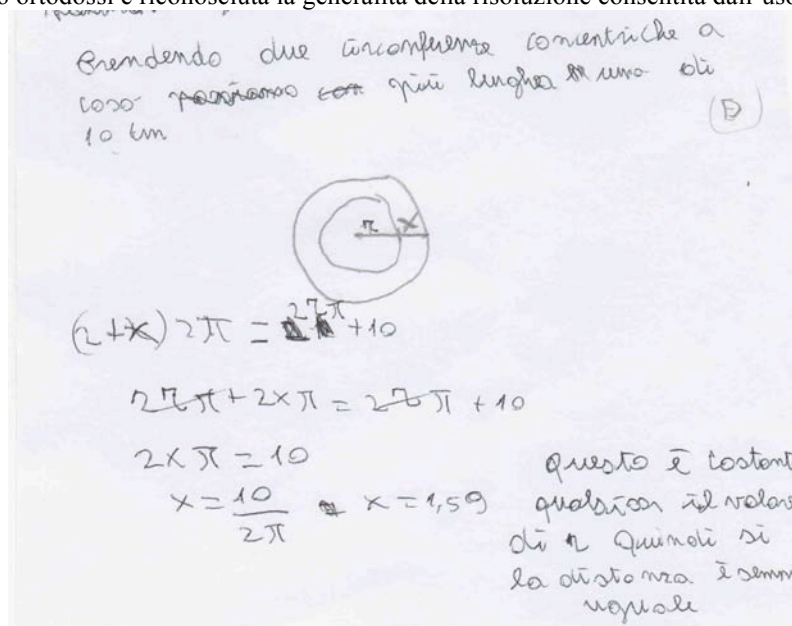 ortodossi e riconosciuta la generalità della risoluzione consentita dall'uso
Prendendo due circonferenze concentriche a
caso più lunga uno di
10 cm
D
r x
(r+x)2π = 2rπ+10
2rπ+2xπ = 2rπ + 10
2xπ = 10
x = 10/2π x = 1,59
Questo è costant
qualsiasi il valore
di r Quindi si
la distanza è semp
uguale